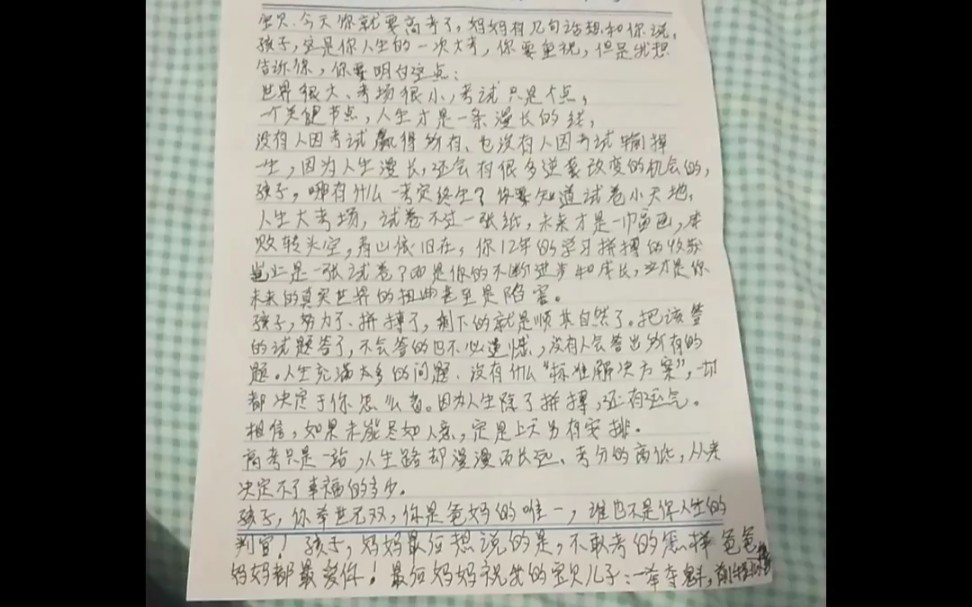 宝贝.今天你就要高考了,妈妈有几句话想和你说,
孩子,这是你人生的一次大考,你要重视,但是我想
告诉你,你要明白这点:
世界很大、考场很小,考试只是个点,
一个关键节点,人生才是一条漫长的线,
没有人因考试赢得所有、也没有人因考试输掉
一生,因为人生漫长,还会有很多逆袭改变的机会的,
孩子,哪有什么一考定终生?你要知道试卷小天地,
人生大考场,试卷不过一张纸,未来才是一巾画画,成
败转头空,青山依旧在,你12年的学习拼搏的收获
岂止是一张试卷?而是你的不断进步和成长,这才是你
未来的真实世界的扭曲甚至是陷害。
孩子,努力了、拼搏了,剩下的就是顺其自然了。把该答
的试题答了,不会答的也不必遗憾,没有人会答出所有的
题。人生充满太多的问题、没有什么"标准解决方案",一切
都决定于你怎么看。因为人生除了拼搏,还有运气。
相信,如果未能尽如人意,定是上天另有安排。
高考只是一站,人生路却漫漫而长远、考分的高低,从来
决定不了幸福的多少。
孩子,你举世无双,你是爸妈的唯一,谁也不是你人生的
判官!孩子,妈妈最后想说的是,不敢考的怎样爸爸
妈妈都最爱你!最后妈妈祝我的宝贝儿子:一举夺魁,前程